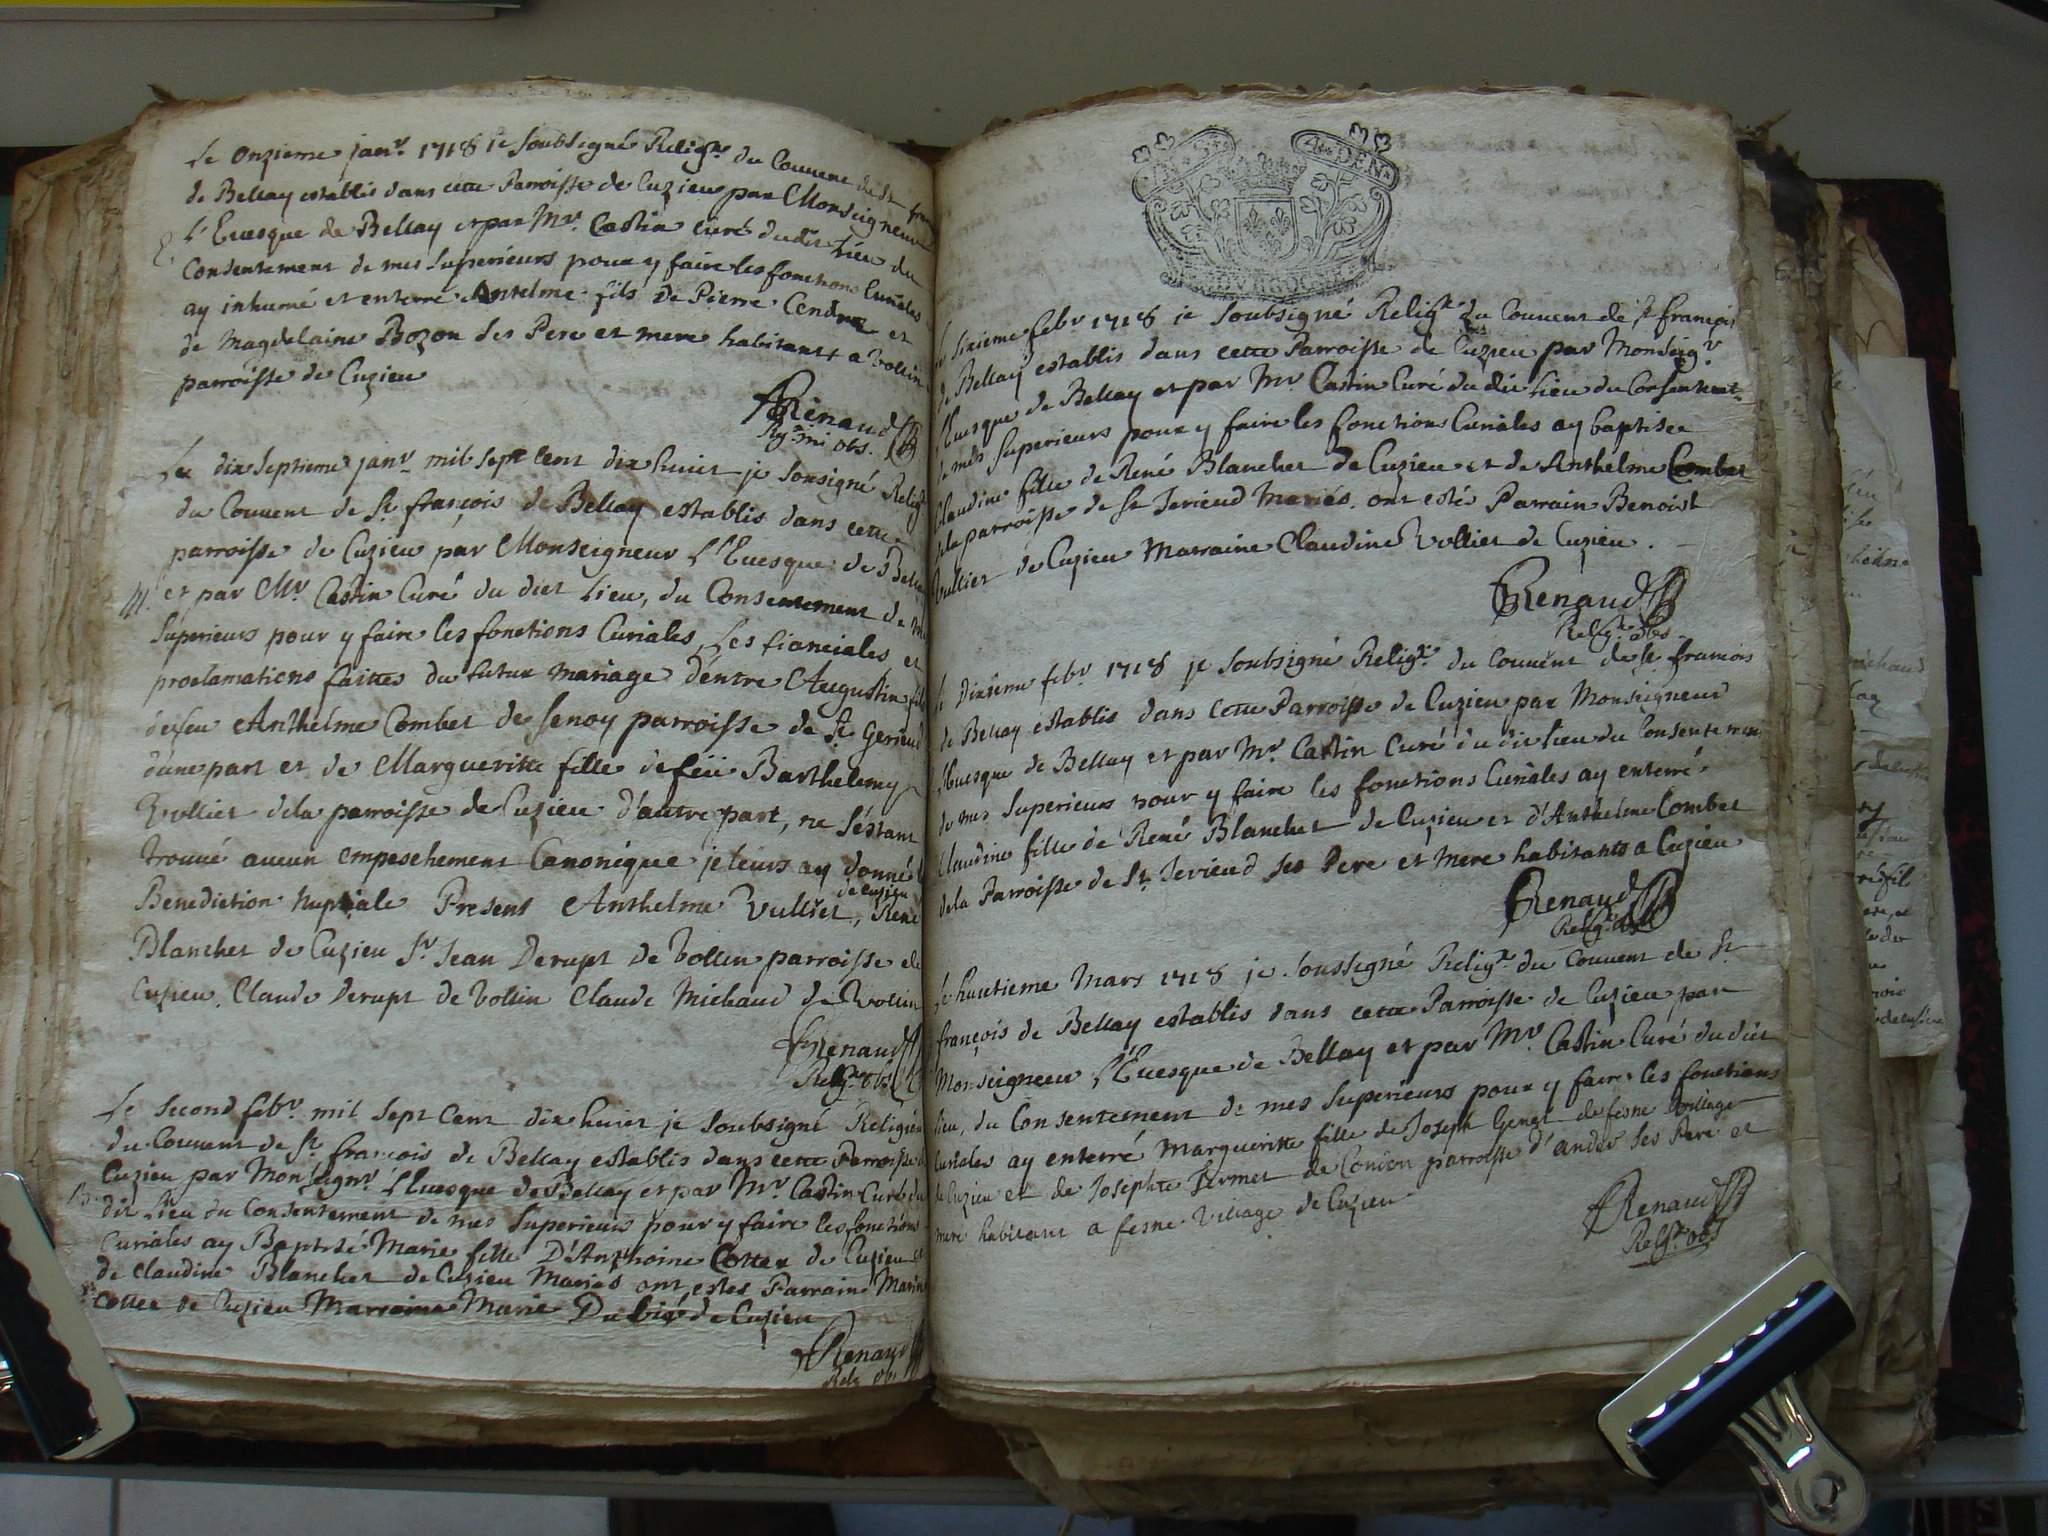 Le onzieme janv. 1718 je soubsigné Relig.x du Couvent de St fran
de Bellay establis dans cette Parroisse de Cuzieu par Monseigneur
L'Evesque de Bellay et par Mr. Castin curé dudit Lieu du
E.
Consentement de mes superieurs pour y faire les fonctions Curiales
ay inhumé et enterré Antelme fils de Pierre Cendrez et
de Magdelaine Bozon ses Pere et mere habitants a Vollin
parroisse de Cuzieu
Renaud
Rgx mi. obs.
Le dix septieme janv. mil sept cent dix huict je sousigné Relig.
du Couvent de St. françois de Bellay establis dans cette
parroisse de Cuzieu par Monseigneur L'Evesque de Bellay
M. et par Mr. Castin Curé du dict Lieu, du Consentement de mes
superieurs pour y faire les fonctions Curiales, Les fianciales et
proclamations faittes du futur mariage d'entre Augustin fils
defeu Anthelme Combet de senoy parroisse de St. Gerieud
dune part et de Margueritte fille defeü Barthelemy
Vollier dela parroisse de Cuzieu d'autre part, ne s'estant
trouué aucun empeschement Canonique je leurs ay donné
Benediction nuptiale Present Anthelme Vullier de cuzieu, René
Blanchet de Cuzieu Sr. Jean Derupt de Vollin parroisse de
Cuzieu. Claude Derupt de Vollin Claude Michaud de Vollin
Renaud
Relgx obs.
Le second febv. mil sept Cent dix huict je soubsigné Religieu
du Couvent de St. françois de Bellay establis dans cette Parroisse
Cuzieu par Monseignr. L'Evesque de Bellay et par Mr. Castin Curé du
B. dit Lieu du Consentement de mes superieurs pour y faire les fonctions
Curiales ay Baptisé Marie fille D'Anthoine Cottex de Cuzieu et
de Claudine Blanchet de Cuzieu Mariés ont estés Parrain Marin
Cottex de Cuzieu Marraine Marie Du de Cuzieu
Renaud
Relg. obs
DEN.
Le sixieme febv 1718 je soubsigné Religx du Couvent de St françois
de Bellay establis dans cette Parroisse de Cuzieu par Monseigr.
l'Euesque de Bellay et par Mr. Castin Curé du dit Lieu du Consentemt
de mes superieurs pour y faire les fonctions Curiales ay baptisée
Claudine fille de René Blanchet de Cuzieu et de Anthelme Combet
de la parroisse de St Jerieud Mariés. ont estés Parrain Benoist
Vullier de Cuzieu Marraine Claudine Vollier de Cuzieu.
Renaud
Religx obs
Le dixieme febv. 1718 je soubsigné Religx. du couvent de St. francois
de Bellay establis dans cette Parroisse de Cuzieu par Monseigneur
l'Euesque de Bellay et par Mr. Castin Curé du dit lieu du Consentemen
de mes superieurs pour y faire les fonctions Curiales ay enterré
Claudine fille de René Blanchet de Cuzieu et d'Anthelme Combet
de la Parroisse de St. Jerieud ses Pere et mere habitants a Cuzieu
Renaud
Relig.
Le huictieme Mars 1718 je soussigné Religx. du Couvent de St
françois de Bellay establis dans cette Parroisse de Cuzieu par
Monseigneur L'Evesque de Bellay et par Mr. Castin Curé du dict
lieu, du Consentement de mes superieurs pour y faire les fonctions
Curiales ay enterré Margueritte fille de Joseph Genet de fesne Village
de Cuzieu et de Josephte Fermet de Condon parroisse d'andert ses Pere et
mere habitant a fesne Village de Cuzieu
Renaud
Relgx obs